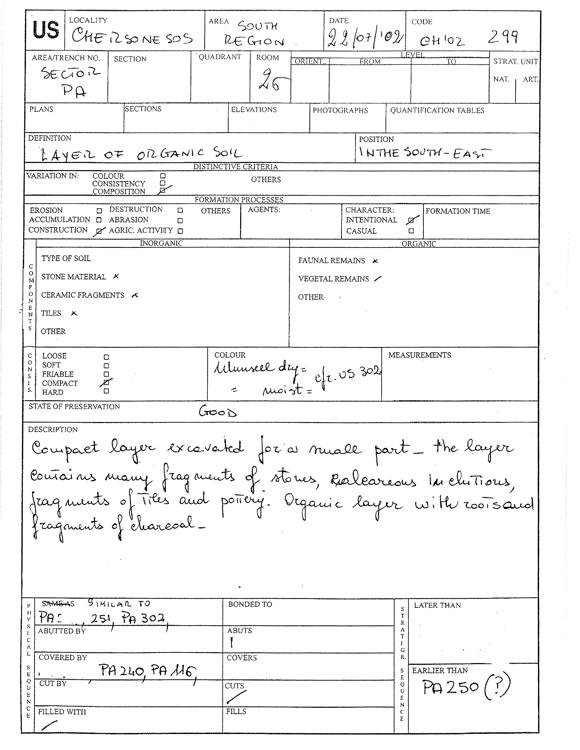 US
LOCALITY
CHERSONESOS
AREA SOUTH
REGION
DATE
22/07/'02
CODE
CH'02 299
AREA/TRENCH NO.
SECTOR
PA
SECTION
QUADRANT
ROOM
26
LEVEL
ORIENT. FROM TO
STRAT. UNIT
NAT. ART.
PLANS
SECTIONS
ELEVATIONS
PHOTOGRAPHS
QUANTIFICATION TABLES
DEFINITION
LAYER OF ORGANIC SOIL
POSITION
IN THE SOUTH-EAST
DISTINCTIVE CRITERIA
VARIATION IN: COLOUR
CONSISTENCY
COMPOSITION
OTHERS
FORMATION PROCESSES
EROSION DESTRUCTION OTHERS
ACCUMULATION ABRASION
CONSTRUCTION AGRIC. ACTIVITY
AGENTS:
CHARACTER:
INTENTIONAL
CASUAL
FORMATION TIME
INORGANIC
ORGANIC
COMPONENTS
TYPE OF SOIL
STONE MATERIAL x
CERAMIC FRAGMENTS x
TILES x
OTHER
FAUNAL REMAINS x
VEGETAL REMAINS
OTHER
CONSIS.
LOOSE
SOFT
FRIABLE
COMPACT
HARD
COLOUR
Munsell dry = cfr. US 302
" moist =
MEASUREMENTS
STATE OF PRESERVATION
GOOD
DESCRIPTION
Compact layer excavated for a small part - the layer
contains many fragments of stones, calcareous inclutions,
fragments of tiles and pottery. Organic layer with roots and
fragments of charcoal -
PHYSICAL SEQUENCE
SAME AS SIMILAR TO
PA: , 251, PA 302,
ABUTTED BY
COVERED BY
PA 240, PA 116,
CUT BY
FILLED WITH
BONDED TO
ABUTS
COVERS
CUTS
FILLS
STRATIGR. SEQUENCE
LATER THAN
EARLIER THAN
PA 250 (?)